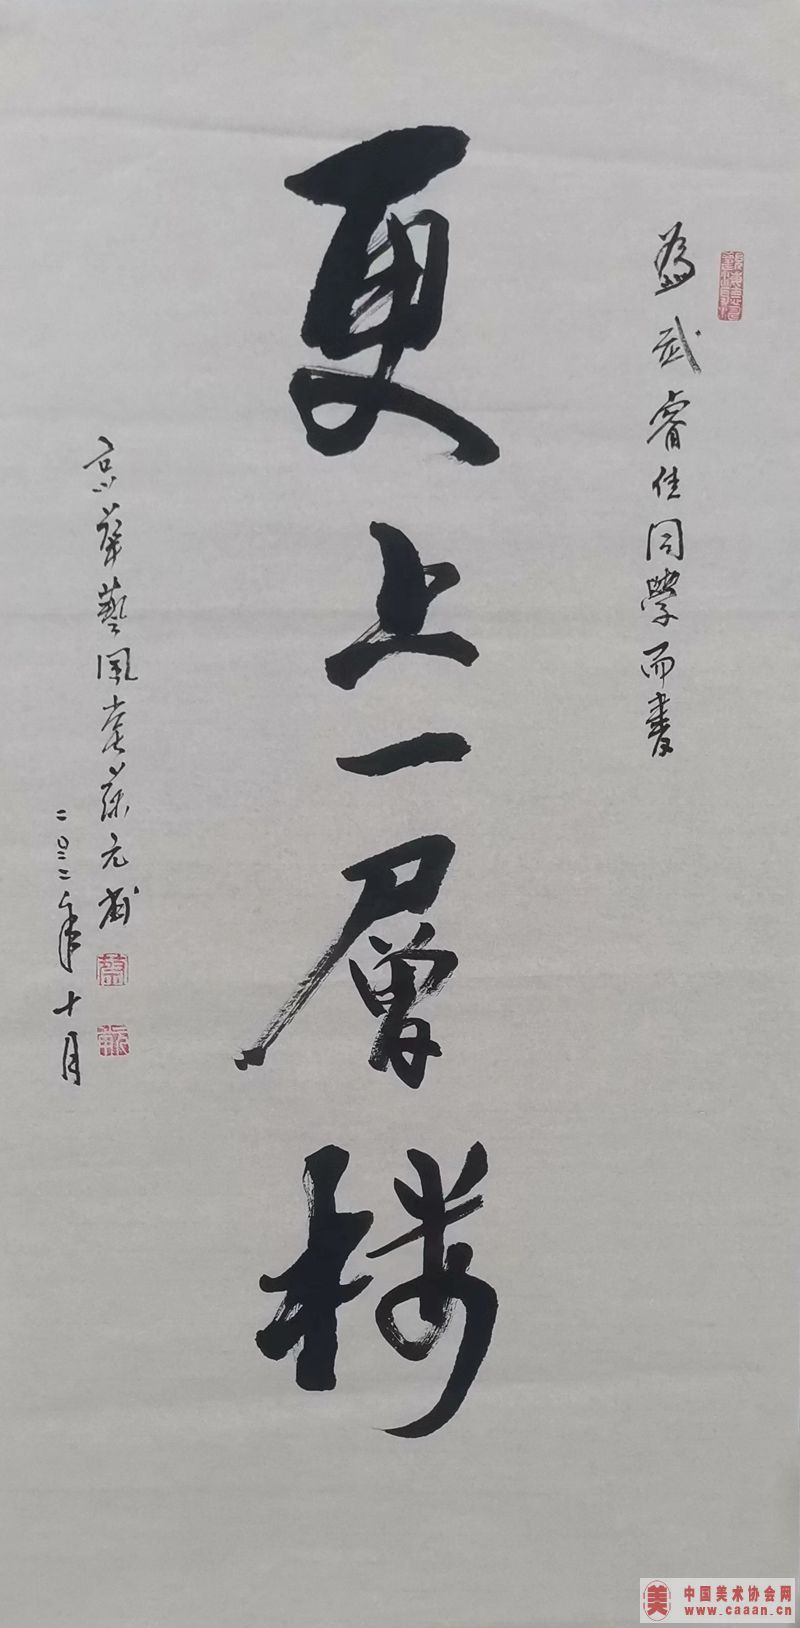 為武睿佳同學而書
更上一層楼
京華藝風堂蔡元
二〇二二年十月
中国美术协会网
www.caaan.cn